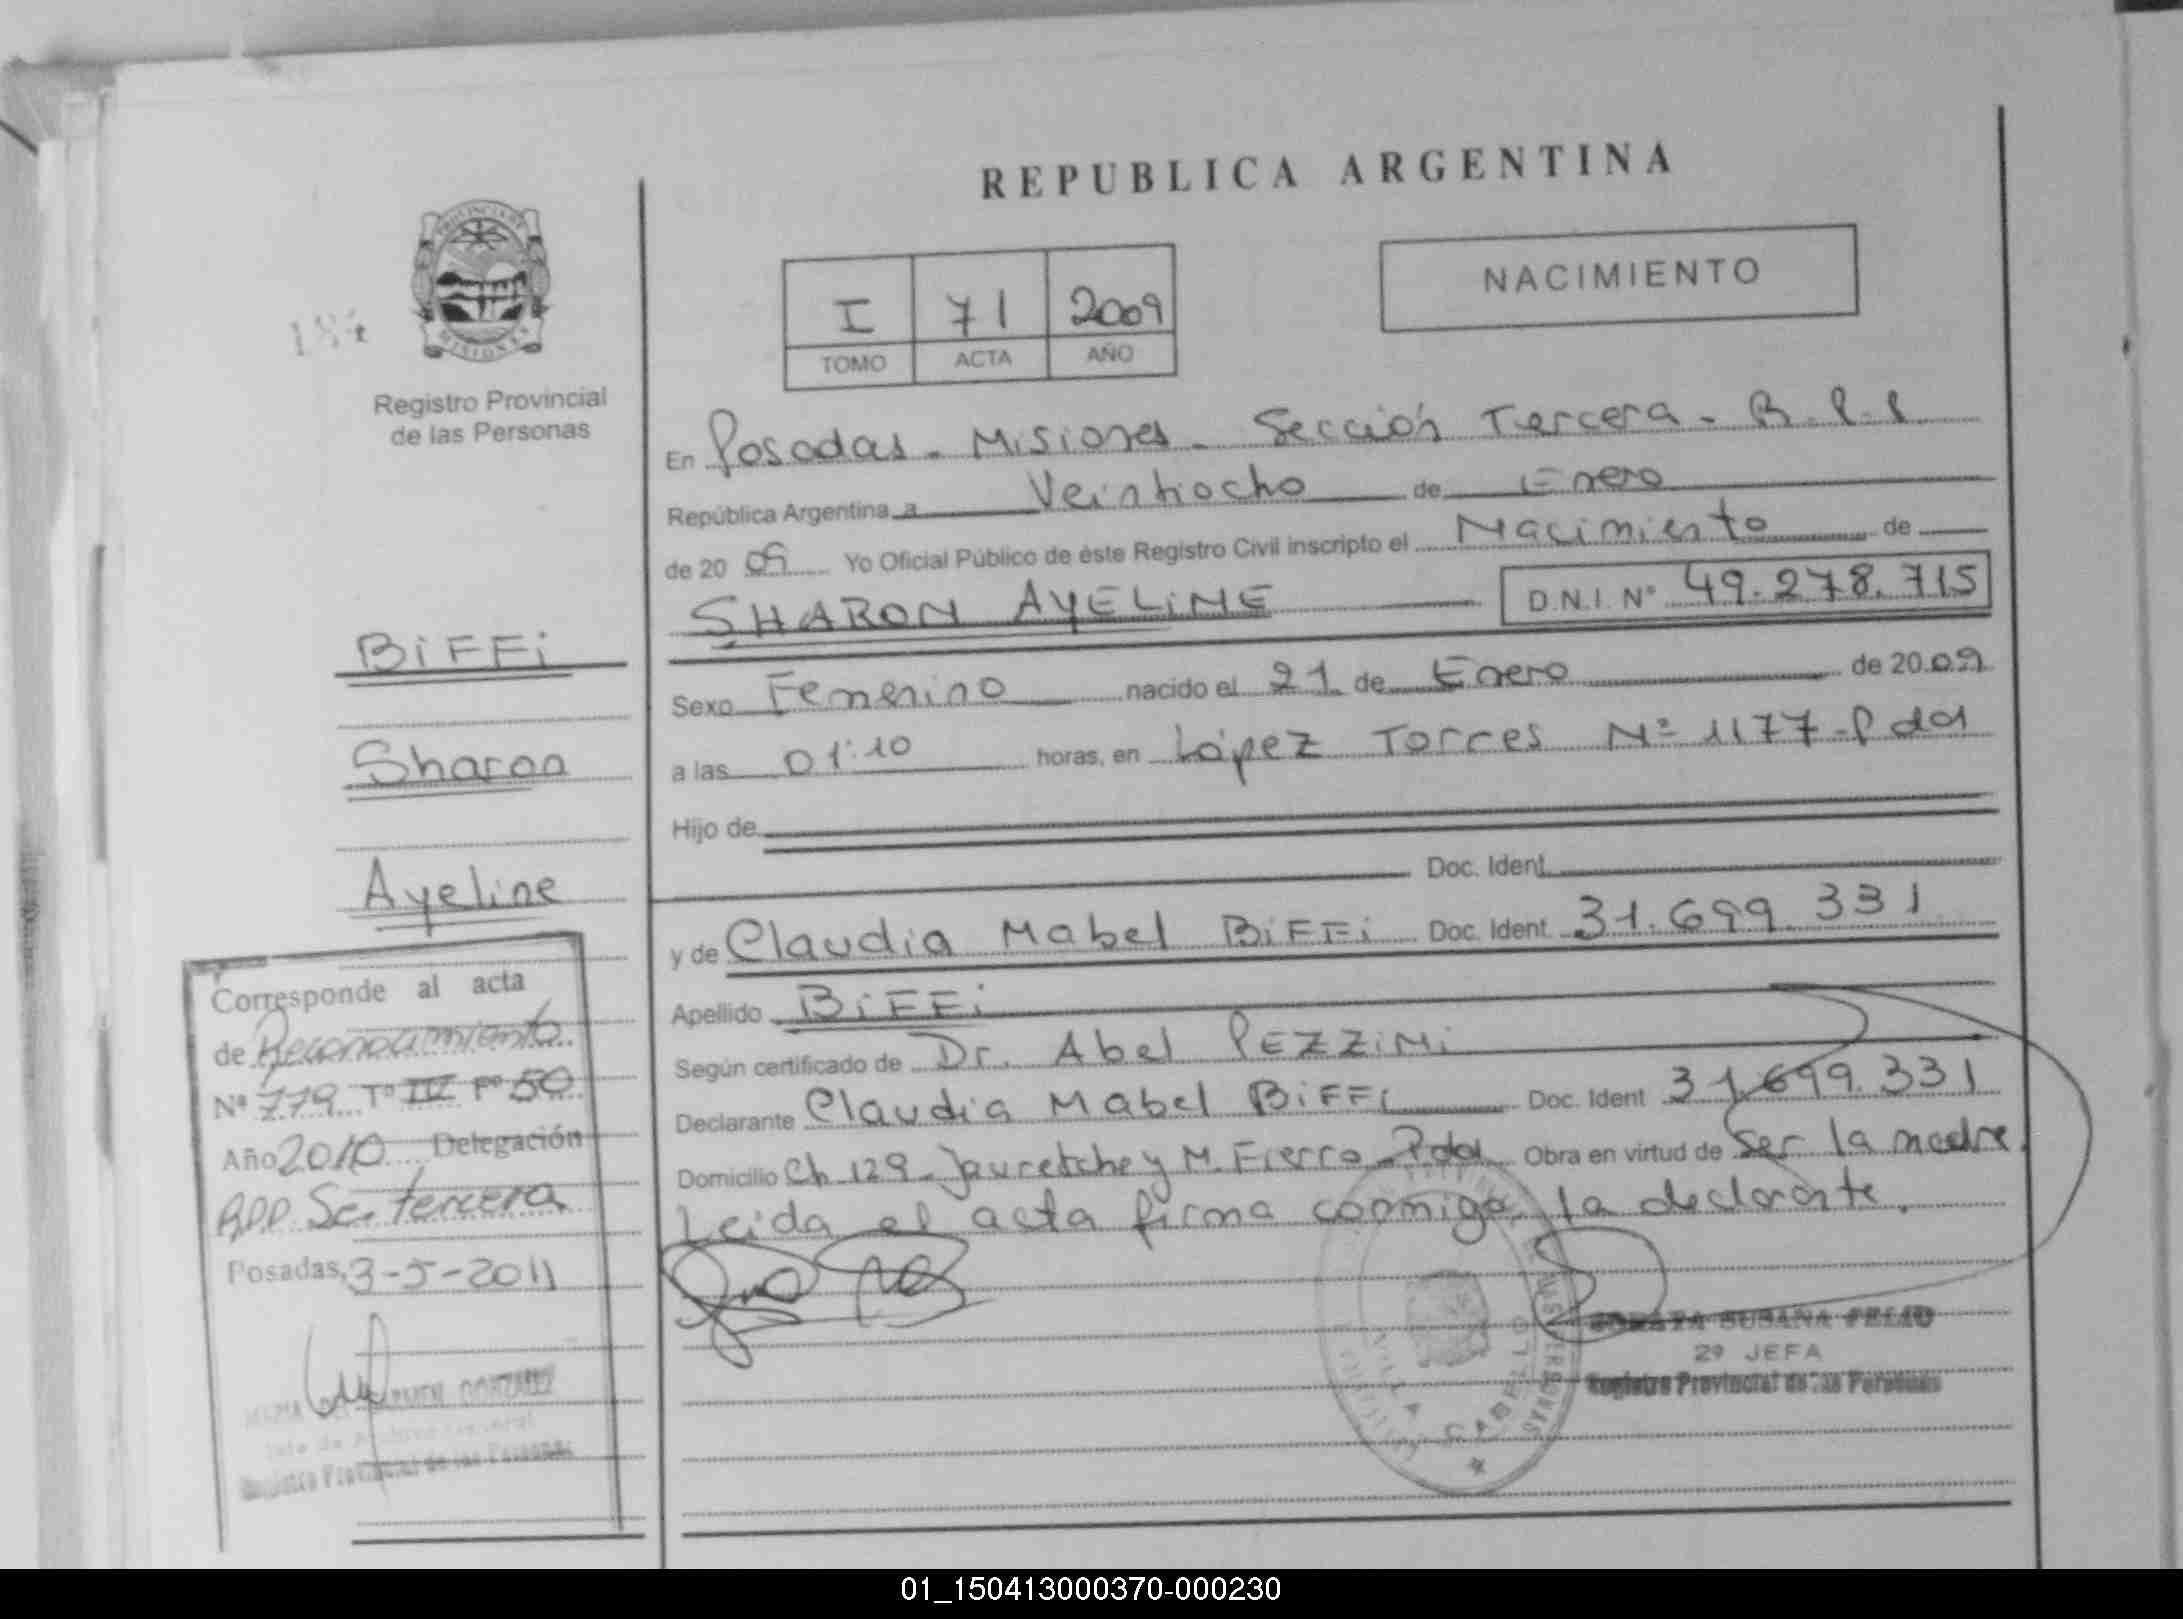 REPUBLICA ARGENTINA
NACIMIENTO
I 71 2009
TOMO ACTA AÑO
PROVINCIA DE
MISIONES
Registro Provincial
de las Personas
En Posadas - Misiones - Sección Tercera - R.P.P
República Argentina a Veintiocho de Enero
de 2009 Yo Oficial Público de éste Registro Civil inscripto el Nacimiento de
SHARON AYELINE D.N.I. Nº 49.278.715
Sexo Femenino nacido el 21 de Enero de 2009
a las 01:10 horas, en López Torres Nº 1177 - Pdas
Hijo de
Doc. Ident.
y de Claudia Mabel BiFFi Doc. Ident. 31.699.331
Apellido BiFFi
Según certificado de Dr. Abel PEZZiNi
Declarante Claudia Mabel BiFFi Doc. Ident 31.699.331
Domicilio Ch 129 - Jauretche y M. Fierro - Pdas Obra en virtud de Ser la madre.
Leida el acta firma conmigo la declarante.
BiFFi
Sharon
Ayeline
Corresponde al acta
de Reconocimiento
Nº 779 Tº III Fº 50
Año 2010 Delegación
RPP Sc. tercera
Posadas, 3-5-2011
MARIA DEL CARMEN GONZALEZ
Registro Provincial de las Personas
SUSANA
2º JEFA
Registro Provincial de las Personas
VILLA CABELLO
01_150413000370-000230